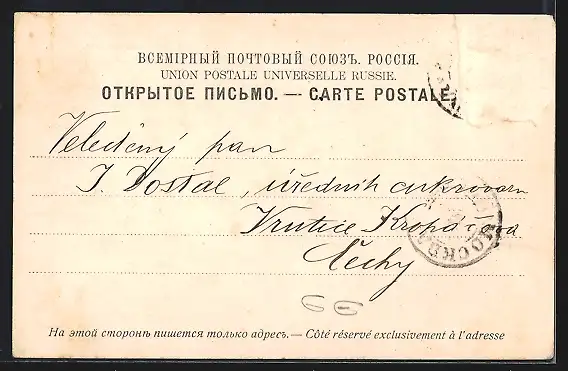 ВСЕМІРНЫЙ ПОЧТОВЫЙ СОЮЗЪ. РОССІЯ.
UNION POSTALE UNIVERSELLE RUSSIE.
ОТКРЫТОЕ ПИСЬМО. — CARTE POSTALE
Veledčený pan
J. Dostal, úředník cukrovaru
Vrutice Kropáčova
Čechy
МОСКВА
66
На этой сторонѣ пишется только адресъ. — Côté réservé exclusivement à l'adresse